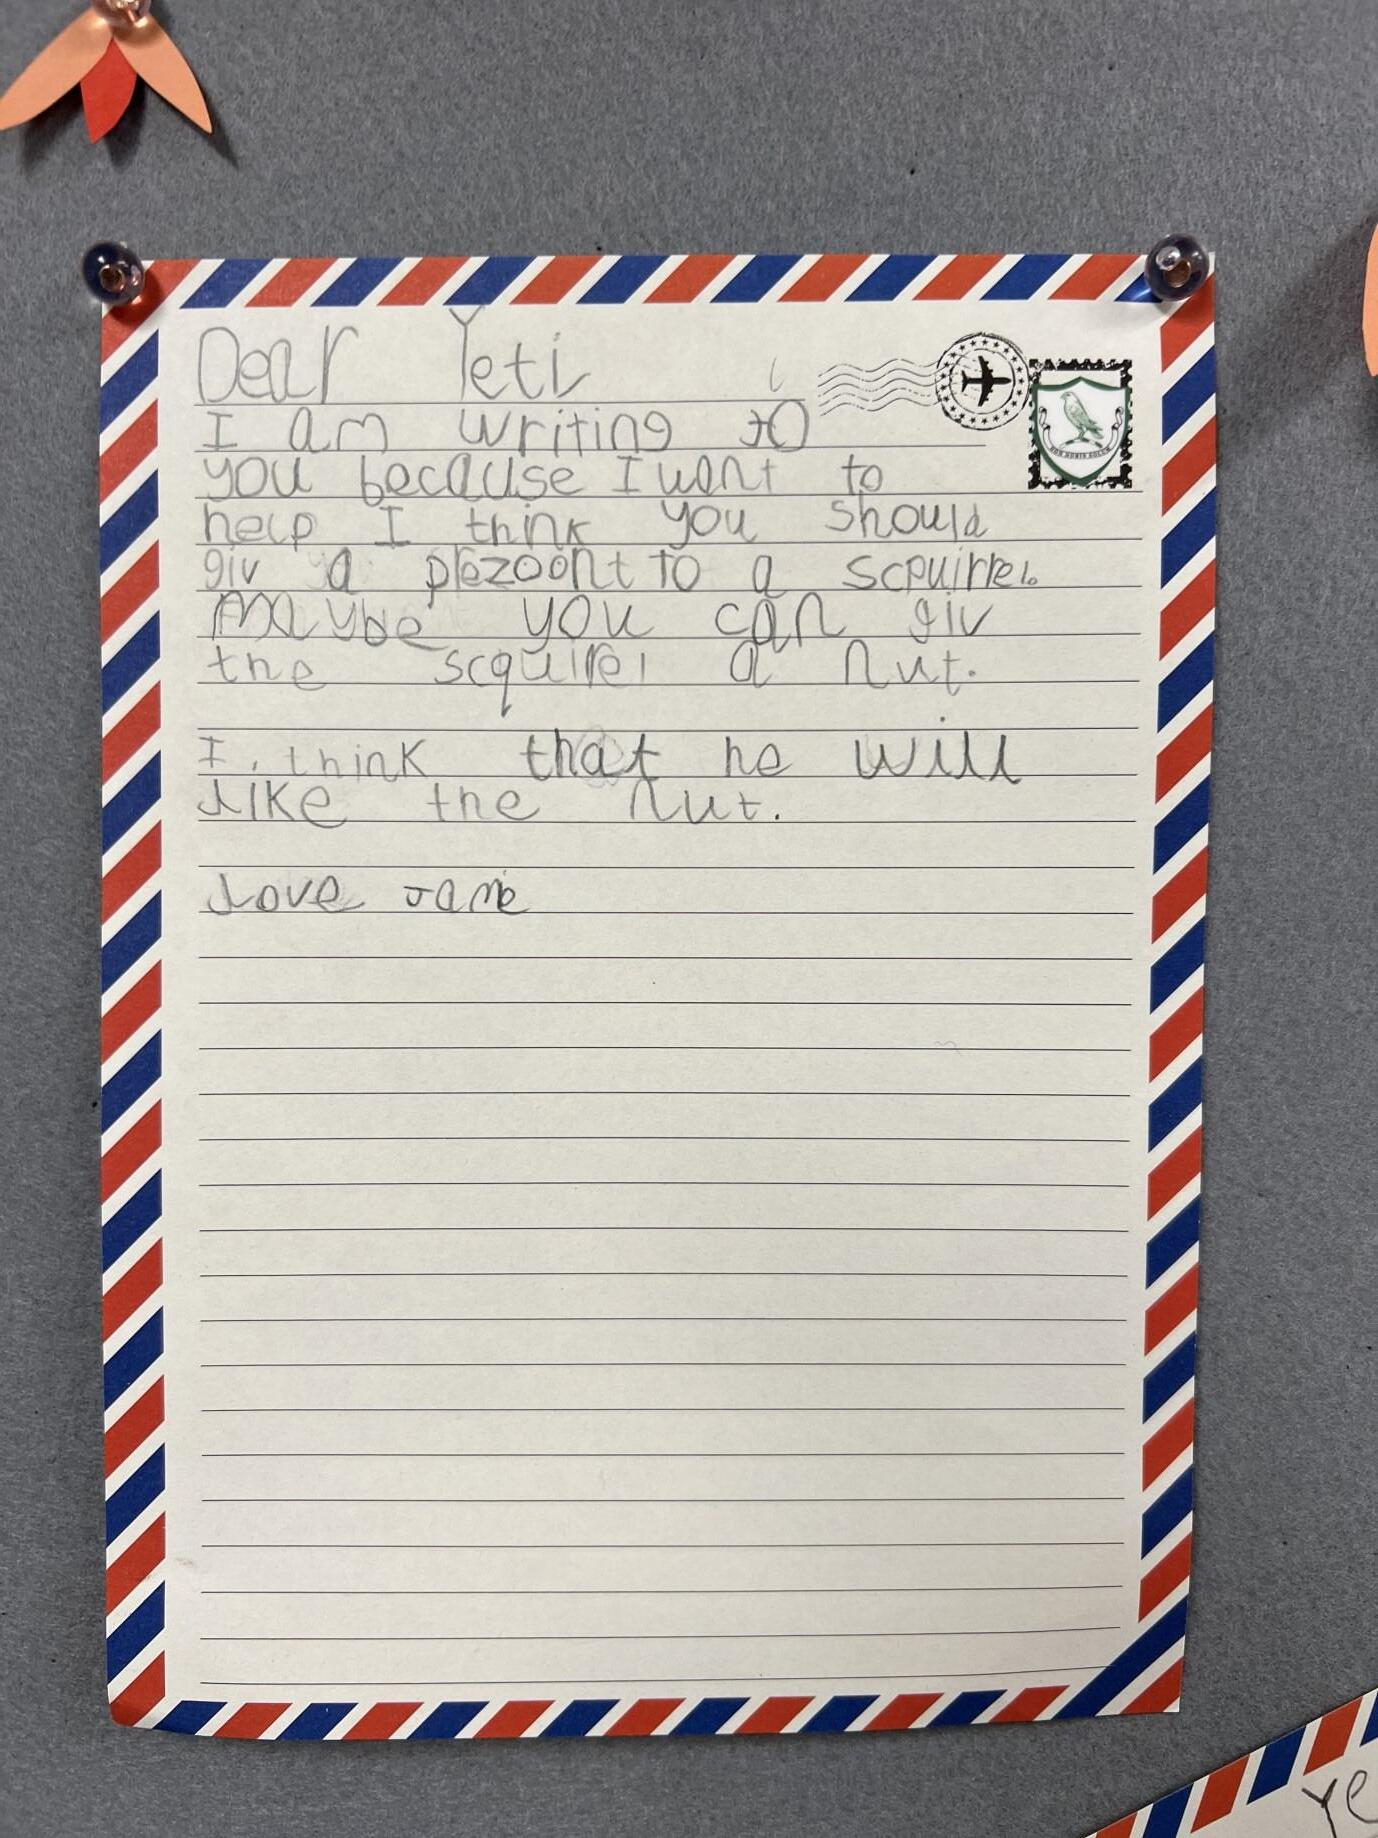 Dear Yeti
I am writing to
you because I want to
help I think you should
giv a prezoont to a scpuirrel.
Maybe you can giv
the scquirel a nut.
I think that he will
like the nut.
Love Jamie
NON NOBIS SOLUM
Ye